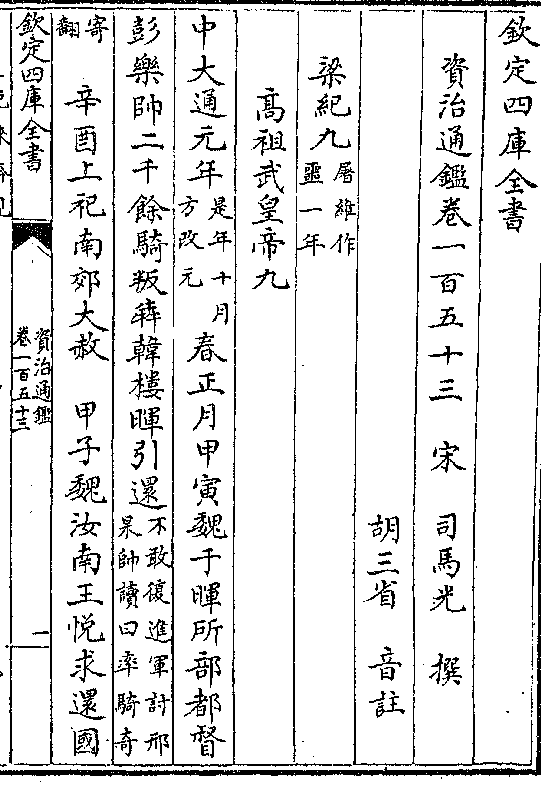 欽定四庫全書
資治通鑑卷一百五十三 宋 司馬光 撰
胡三省 音註
梁紀九 屠維作
噩一年
高祖武皇帝九
中大通元年 是年十月
方改元 春正月甲寅魏于暉所部都督
彭樂帥二千餘騎叛犇韓樓暉引還 不敢復進軍討邢
杲帥讀曰率騎奇
寄
翻 辛酉上祀南郊大赦 甲子魏汝南王悅求還國
欽定四庫全書
資治通鑑
卷一百五十三
一